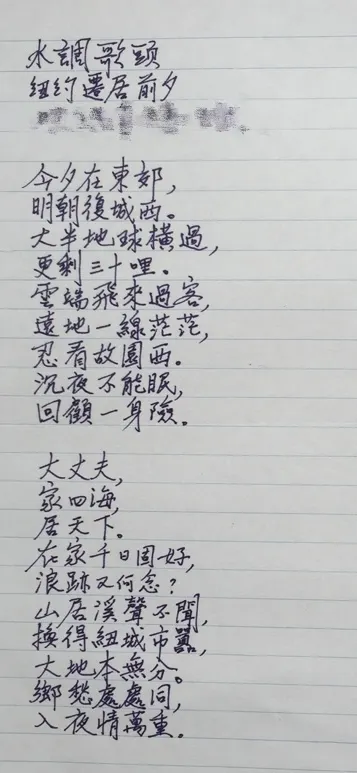 水調歌頭
紐約遷居前夕
今夕在東郊,
明朝復城西。
大半地球橫過,
更剩三十哩。
雲端飛來過客,
遠地一線茫茫,
忍看故園西。
沉夜不能眠,
回顧一身險。
大丈夫,
家四海,
居天下。
在家千日固好,
浪跡又何念?
山居溪聲不聞,
換得紐城市囂,
大地本無分。
鄉愁處處同,
入夜情萬重.